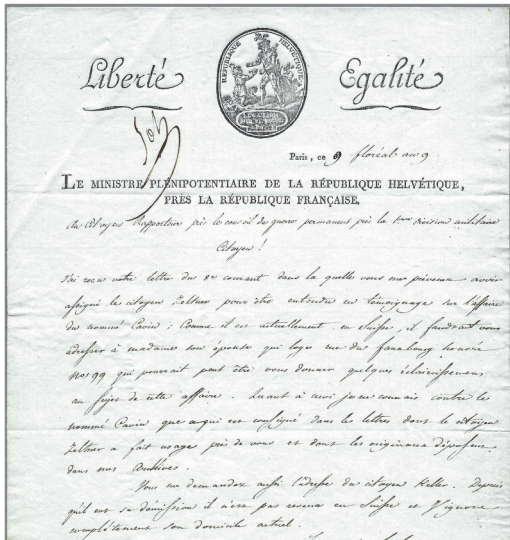 Liberté Egalité
REPUBLIQUE HELVETIQUE
LEGATION HELVETIQUE
Paris, ce 9 floréal an 9.
LE MINISTRE PLÉNIPOTENTIAIRE DE LA RÉPUBLIQUE HELVÉTIQUE,
PRÈS LA RÉPUBLIQUE FRANÇAISE,
au Citoyen Rapporteur près le conseil de guerre permanent près la 1ere division militaire
Citoyen !
J'ai reçu votre lettre du 8e courant dans la quelle vous me prévenez avoir
assigné le citoyen Zeltner pour être entendu en témoignage sur l'affaire
du nommé Cavin ; Comme il est actuellement en Suisse, il faudrait vous
adresser à madame son épouse qui loge rue du faubourg honoré
No 99 qui pourrait peut être vous donner quelques éclaircissemens
au sujet de cette affaire. Quant à moi je ne connais contre le
nommé Cavin que ce qui est consigné dans les lettres dont le citoyen
Zeltner a fait usage près de vous et dont les originaux déposent
dans nos Archives.
Vous me demandez aussi l'adresse du citoyen Keller. Depuis
qu'il eut sa démission il n'est pas revenu en Suisse et j'ignore
complètement son domicile actuel.